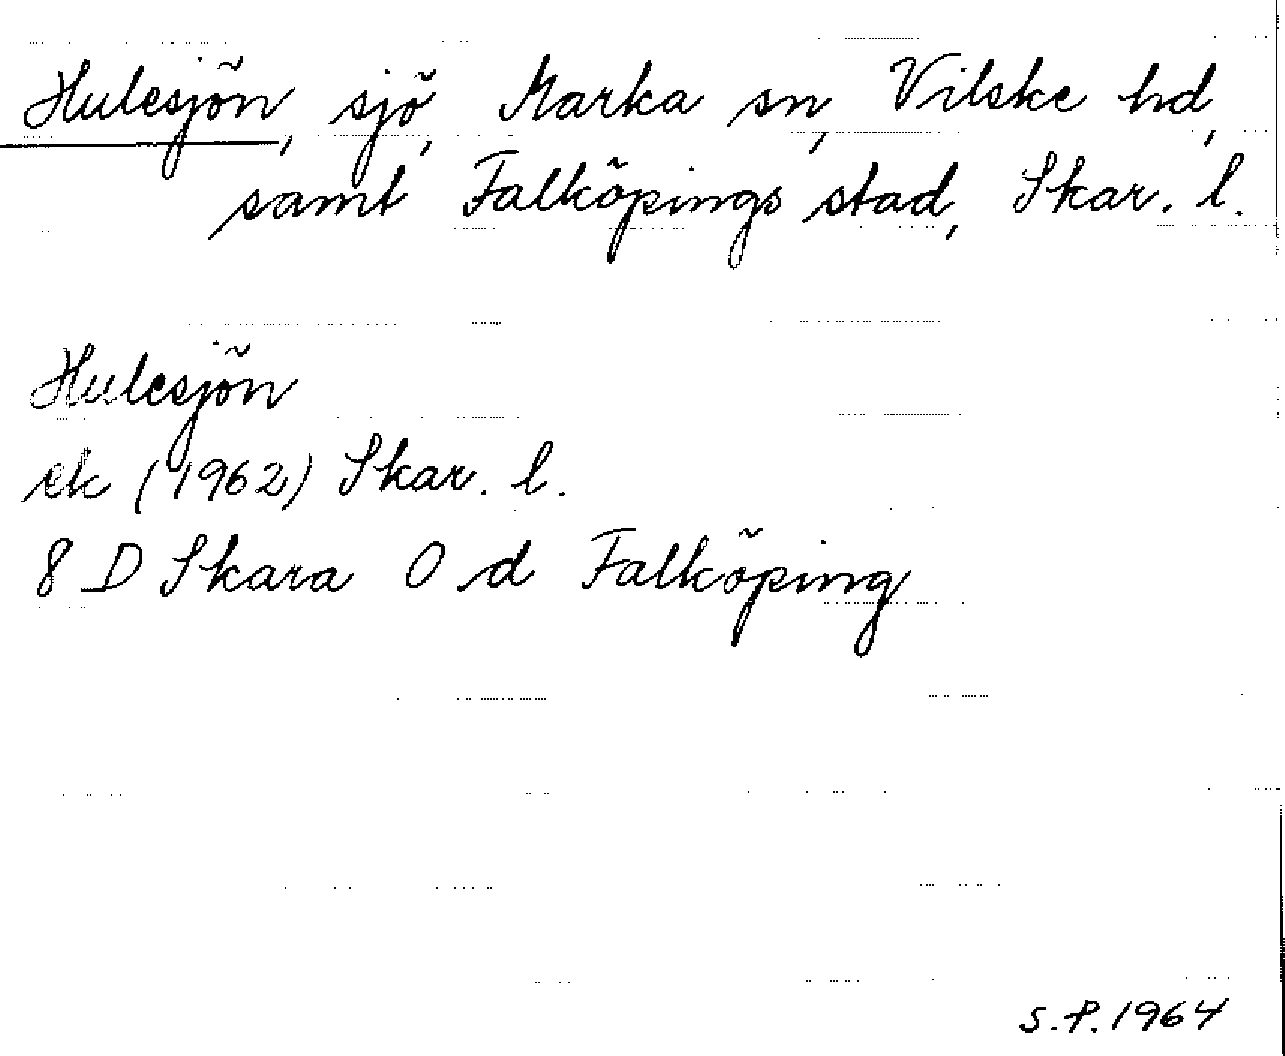 Hulesjön, sjö, Marka sn, Vilske hd,
samt Falköpings stad, Skar. l.
Hulesjön
ek (1962) Skar. l.
8 D Skara 0 d Falköping
S.P. 1964